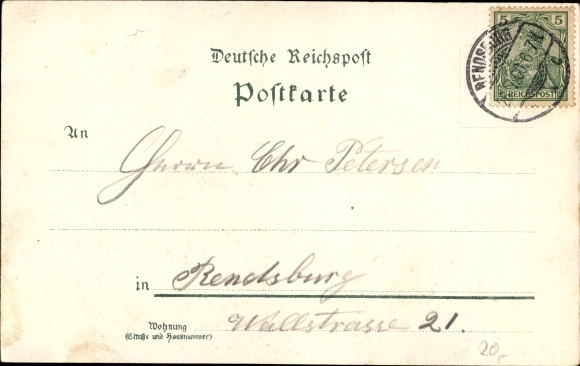 5 5
REICHSPOST
RENDSBURG
Deutsche Reichspost
Postkarte
An
Herrn Chr Petersen
in Rendsburg
Wallstrasse 21.
Wohnung
(Straße und Hausnummer)
20,-